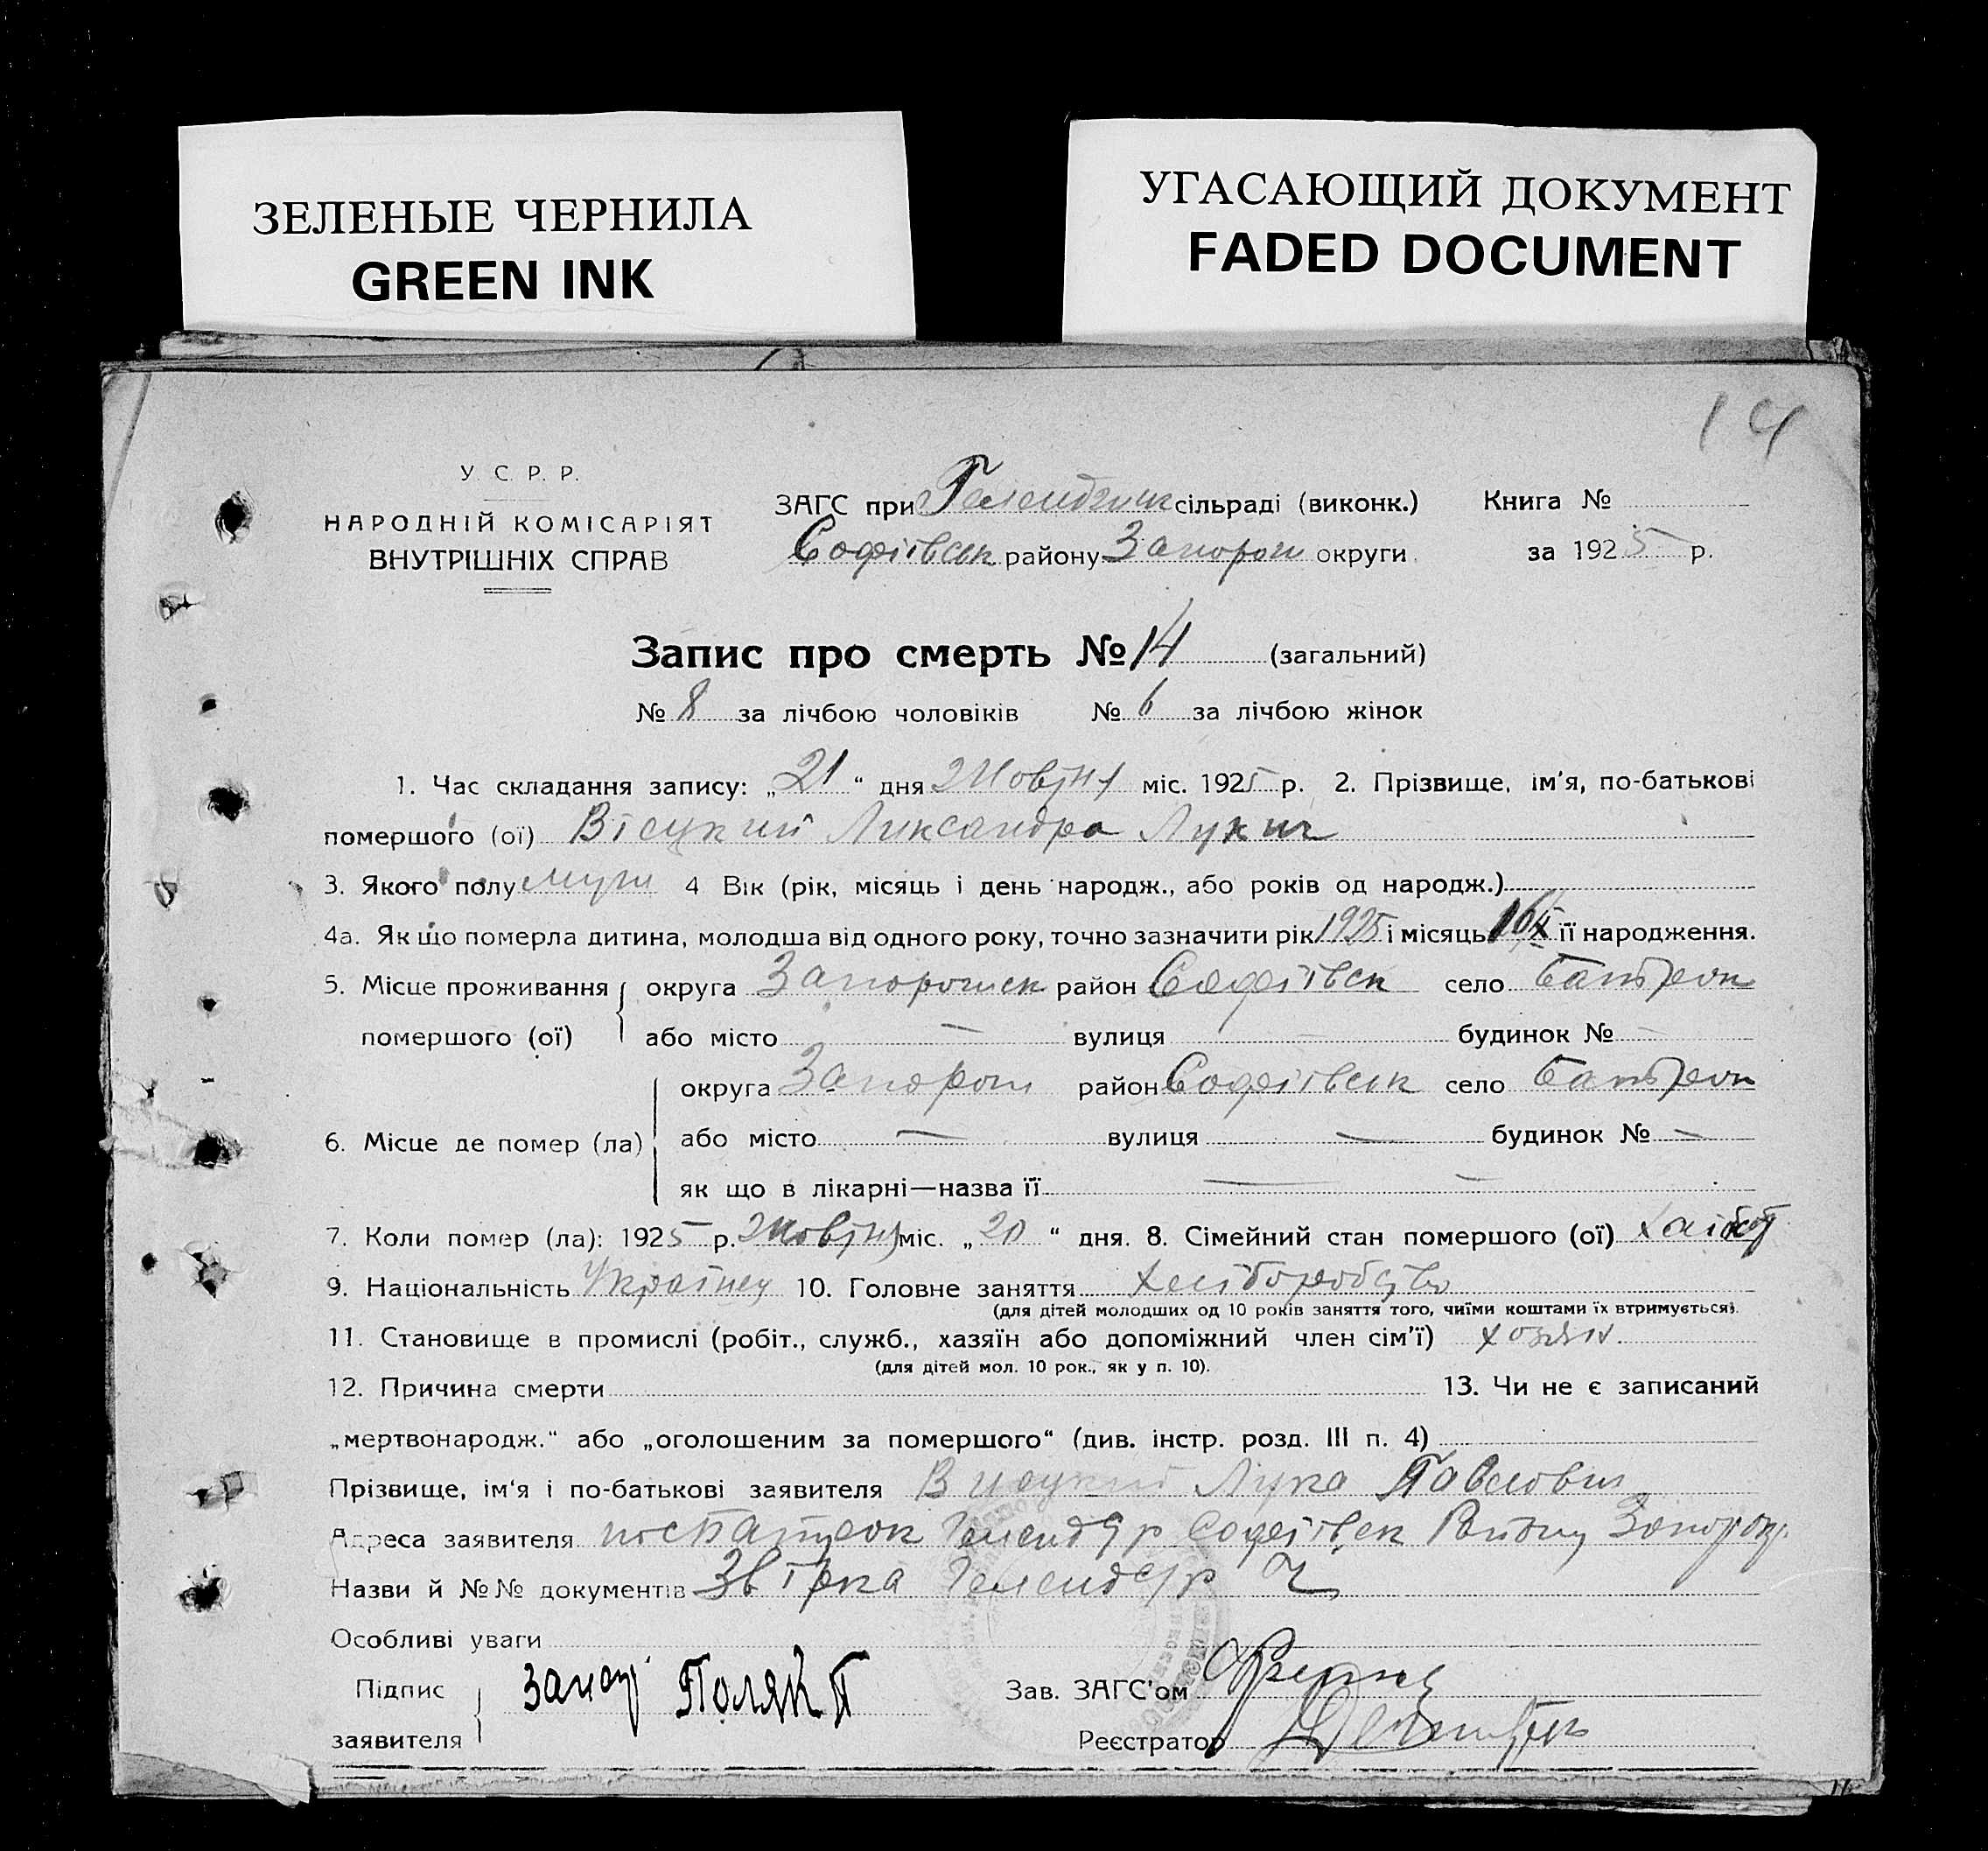 ЗЕЛЕНЫЕ ЧЕРНИЛА
GREEN INK
УГАСАЮЩИЙ ДОКУМЕНТ
FADED DOCUMENT
14
У. С. Р. Р.
НАРОДНІЙ КОМІСАРІЯТ
ВНУТРІШНІХ СПРАВ
ЗАГС при сільраді (виконк.)
Софіївськ району Запорож округи
Книга №
за 1925 р.
Запис про смерть № 14 (загальний)
№ 8 за лічбою чоловіків № 6 за лічбою жінок
1. Час складання запису: „21“ дня Жовтня міс. 1925 р. 2. Прізвище, ім'я, по-батькові
помершого (ої) Вісуцкий Лександра Лукич
3. Якого полу муж 4 Вік (рік, місяць і день народж., або років од народж.)
4а. Як що померла дитина, молодша від одного року, точно зазначити рік 1925 і місяць 16/X її народження.
5. Місце проживання округа Запорожск район Софіївск село
помершого (ої) або місто — вулиця — будинок № —
округа Запорож район Софіївск село
6. Місце де помер (ла) або місто — вулиця — будинок № —
як що в лікарні—назва її —
7. Коли помер (ла): 1925 р. Жовтня міс. „20“ дня. 8. Сімейний стан помершого (ої)
9. Національність Українец 10. Головне заняття хліборобство
(для дітей молодших од 10 років заняття того, чиїми коштами їх втримується).
11. Становище в промислі (робіт., служб., хазяїн або допоміжний член сім'ї) хозяін
(для дітей мол. 10 рок., як у п. 10).
12. Причина смерти 13. Чи не є записаний
„мертвонародж.“ або „оголошеним за помершого“ (див. інстр. розд. III п. 4)
Прізвище, ім'я і по-батькові заявителя Висуцкий Лука Павлович
Адреса заявителя Софіївск
Назви й №№ документів
Особливі уваги
Підпис
заявителя
Поляк П
Зав. ЗАГС'ом
Реєстратор